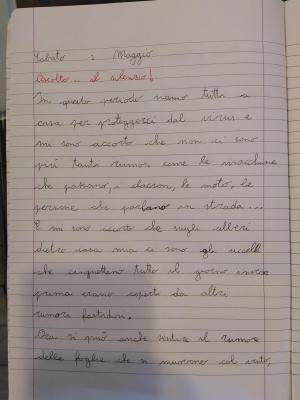 Sabato 2 Maggio
Ascolto... il silenzio!
In questo periodo siamo tutti a
casa per proteggerci dal virus e
mi sono accorto che non ci sono
più tanti rumori come le macchine
che passano, i clacson, le moto, le
persone che parlano in strada...
E mi sono accorto che sugli alberi
dietro casa mia ci sono gli uccelli
che cinguettano tutto il giorno invece
prima erano coperti da altri
rumori fastidiosi.
Ora si può anche sentire il rumore
delle foglie che si muovono col vento,